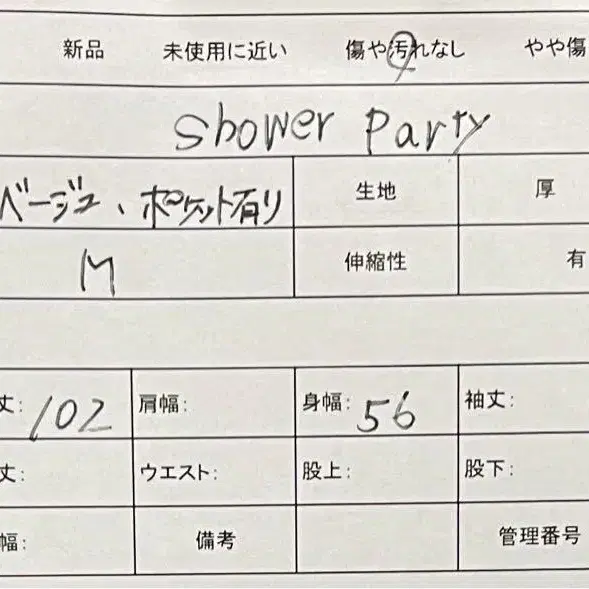 新品 未使用に近い 傷や汚れなし やや傷
Shower Party
ベージュ、ポケット有り 生地 厚
M 伸縮性 有
丈: 102 肩幅: 身幅: 56 袖丈:
丈: ウエスト: 股上: 股下:
幅: 備考 管理番号